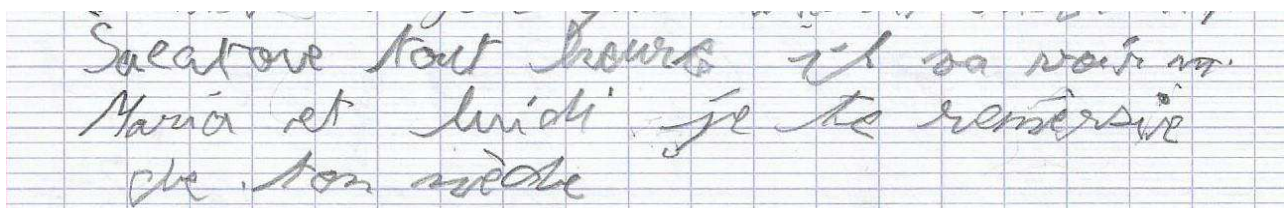 Salatove tout heure il va voir m.
Maria et luidi je te remersie
de ton mède